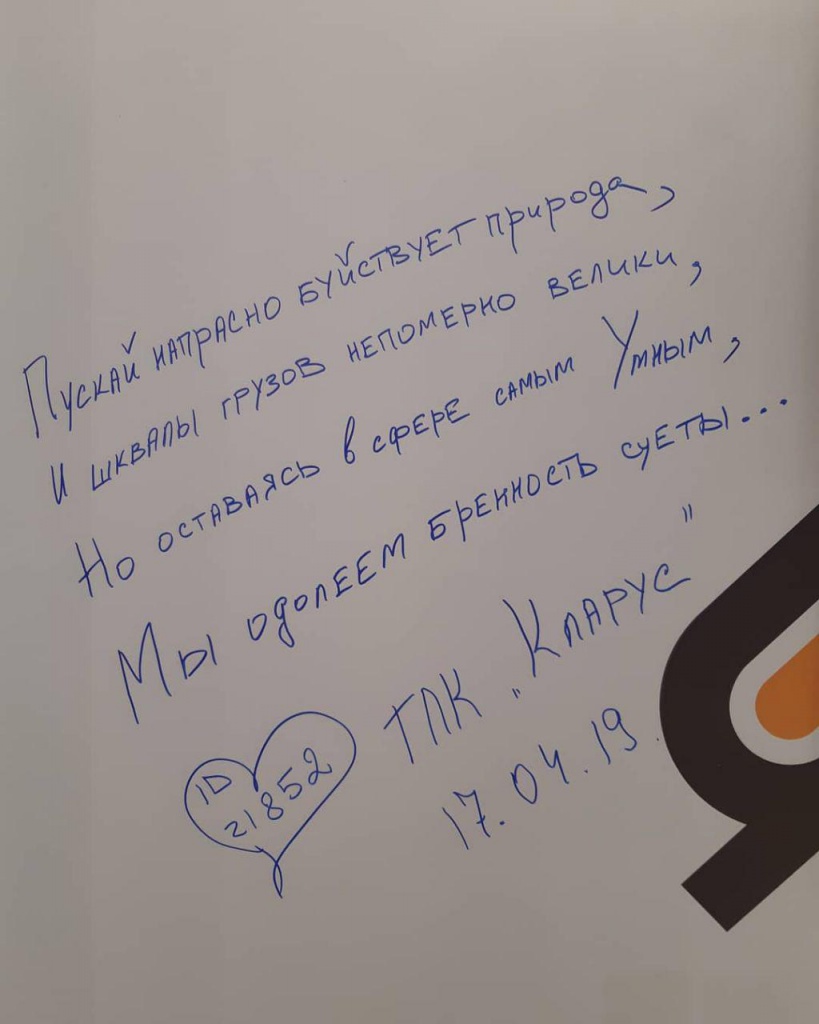 Пускай напрасно буйствует природа,
И шквалы грузов непомерно велики,
Но оставаясь в сфере самым Умным,
Мы одолеем бренность суеты...
ТЛК „Кларус"
ID
21852
17.04.19